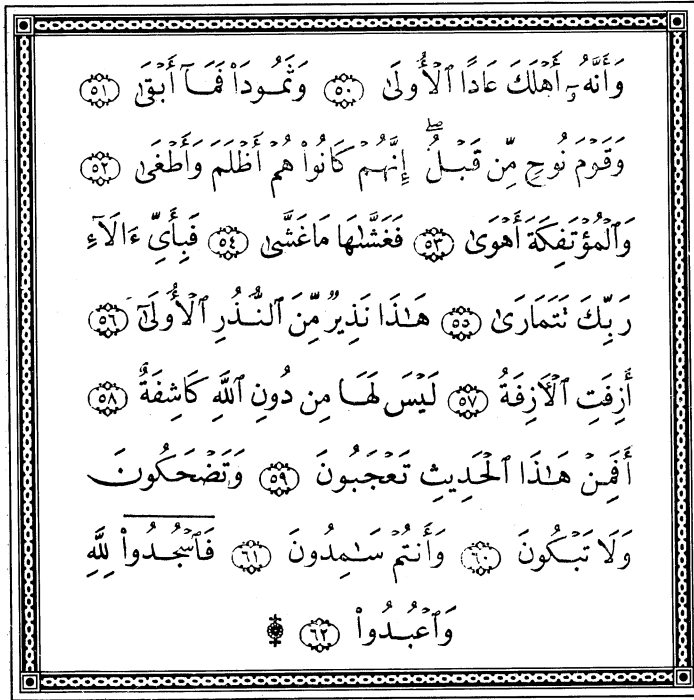 وَأَنَّهُۥٓ أَهۡلَكَ عَادًا ٱلۡأُولَىٰ ٥٠ وَثَمُودَاْ فَمَآ أَبۡقَىٰ ٥١
وَقَوۡمَ نُوحٖ مِّن قَبۡلُۖ إِنَّهُمۡ كَانُواْ هُمۡ أَظۡلَمَ وَأَطۡغَىٰ ٥٢
وَٱلۡمُؤۡتَفِكَةَ أَهۡوَىٰ ٥٣ فَغَشَّىٰهَا مَا غَشَّىٰ ٥٤ فَبِأَيِّ ءَالَآءِ
رَبِّكَ تَتَمَارَىٰ ٥٥ هَٰذَا نَذِيرٞ مِّنَ ٱلنُّذُرِ ٱلۡأُولَىٰٓ ٥٦
أَزِفَتِ ٱلۡأٓزِفَةُ ٥٧ لَيۡسَ لَهَا مِن دُونِ ٱللَّهِ كَاشِفَةٌ ٥٨
أَفَمِنۡ هَٰذَا ٱلۡحَدِيثِ تَعۡجَبُونَ ٥٩ وَتَضۡحَكُونَ
وَلَا تَبۡكُونَ ٦٠ وَأَنتُمۡ سَٰمِدُونَ ٦١ فَٱسۡجُدُواْۤ لِلَّهِ
وَٱعۡبُدُواْ ٦٢